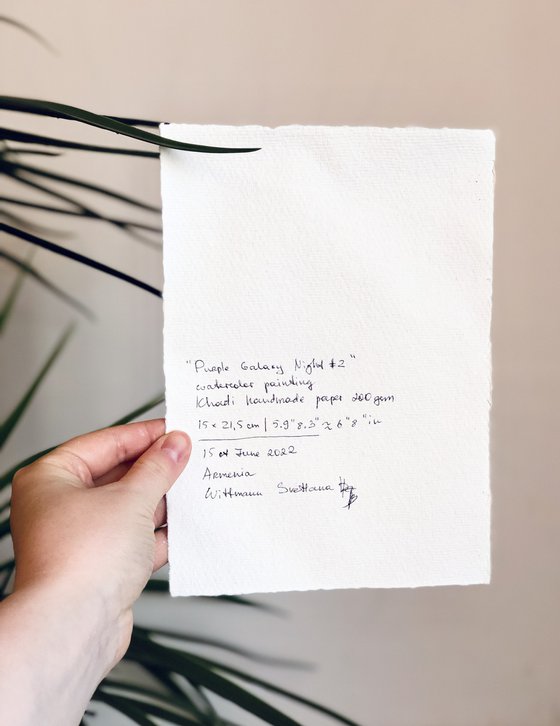 "Purple Galaxy Night #2"
watercolor painting
Khadi handmade paper 200 gsm
15 × 21,5 cm | 5.9" 8.3" ≈ 6" 8" in
15 of June 2022
Armenia
Wittmann Svetlana